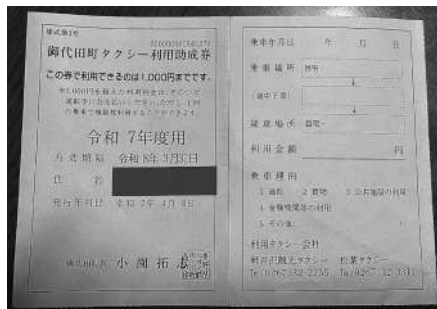 様式第2号
御代田町タクシー利用助成券
この券で利用できるのは1,000円までです。
令和 7年度用
有効期限 令和 8年 3月31日
氏 名
発行年月日 令和 7年 4月 8日
御代田町長 小園拓志
乗車年月日 年 月 日
乗車場所
(途中下車)
降車場所
利用金額 円
乗車理由
1 通院 2 買物 3 公共施設の利用
4 金融機関等の利用
5 その他(
利用タクシー会社
軽井沢観光タクシー 松葉タクシー